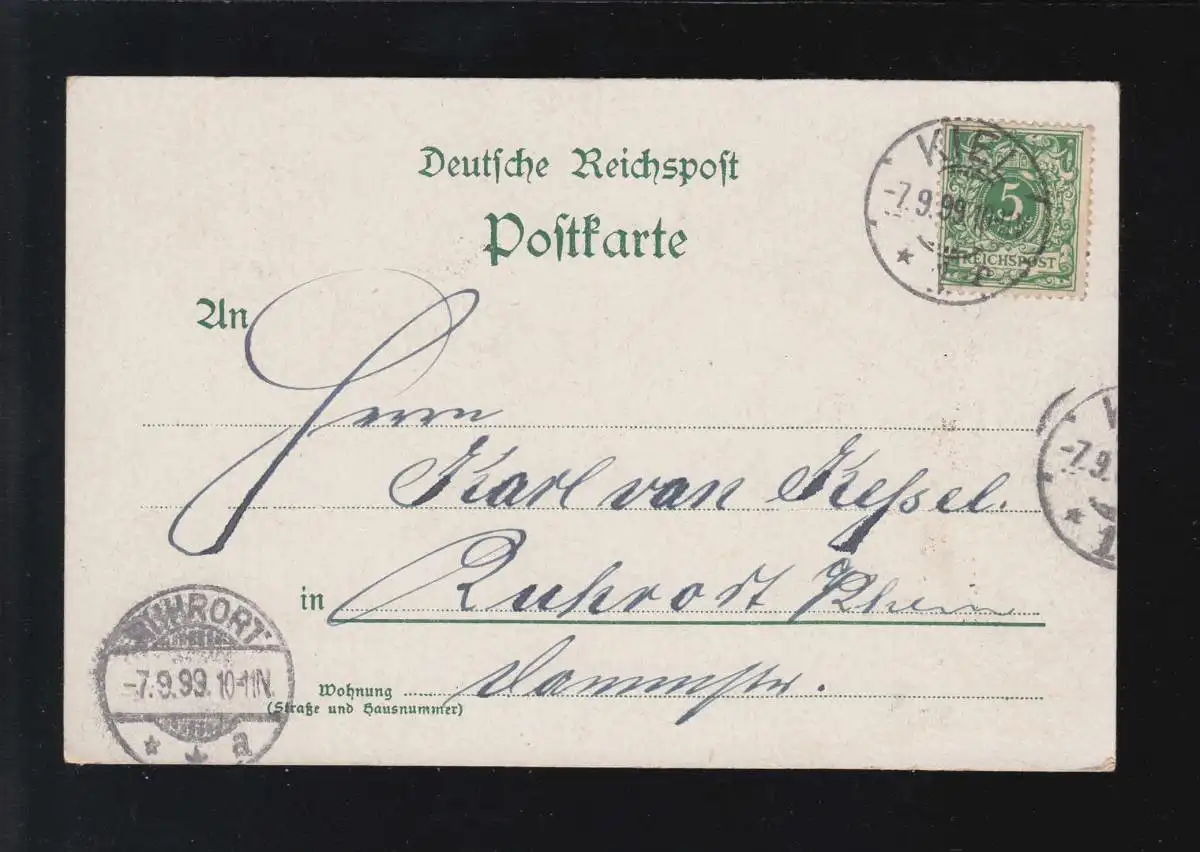 Deutsche Reichspost
Postkarte
KIEL
-7.9.99.
5
REICHSPOST
An
Herrn
Karl van Kessel.
in Ruhrort Rhein
Wohnung Dammstr.
(Straße und Hausnummer)
-7.9.
1
RUHRORT
-7.9.99. 10-11N.
a